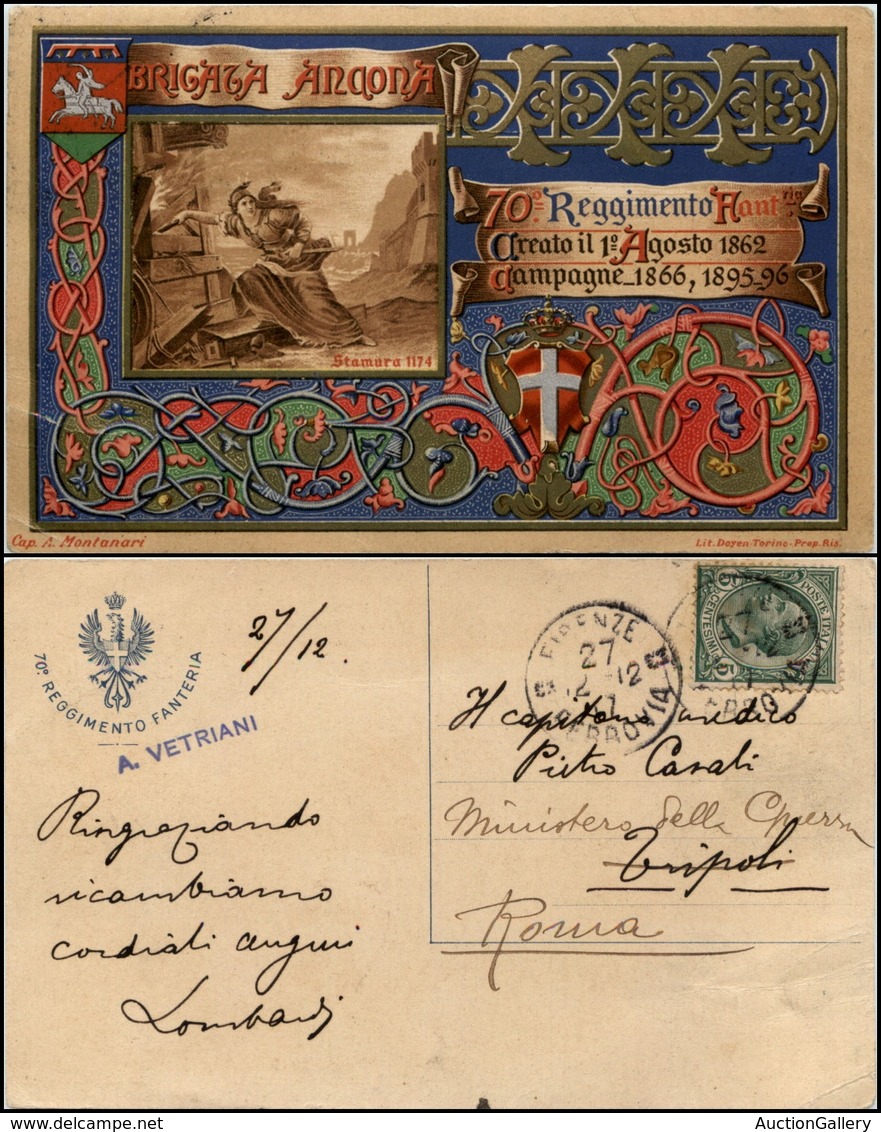 BRIGATA ANCONA
70º Reggimento Fant.ria
Creato il 1º Agosto 1862
Campagne_1866, 1895_96
Stamura 1174
Cap. A. Montanari
Lit. Doyen-Torino-Prop. Ris.
70º REGGIMENTO FANTERIA
A. VETRIANI
27/12.
Ringraziando
ricambiamo
cordiali auguri
Lombardi
FIRENZE
27
12-12
FERROVIA
POSTE ITALIANE
CENTESIMI
5 5
Il capitano medico
Pietro Casali
Ministero della Guerra
Tripoli
Roma
AuctionGallery